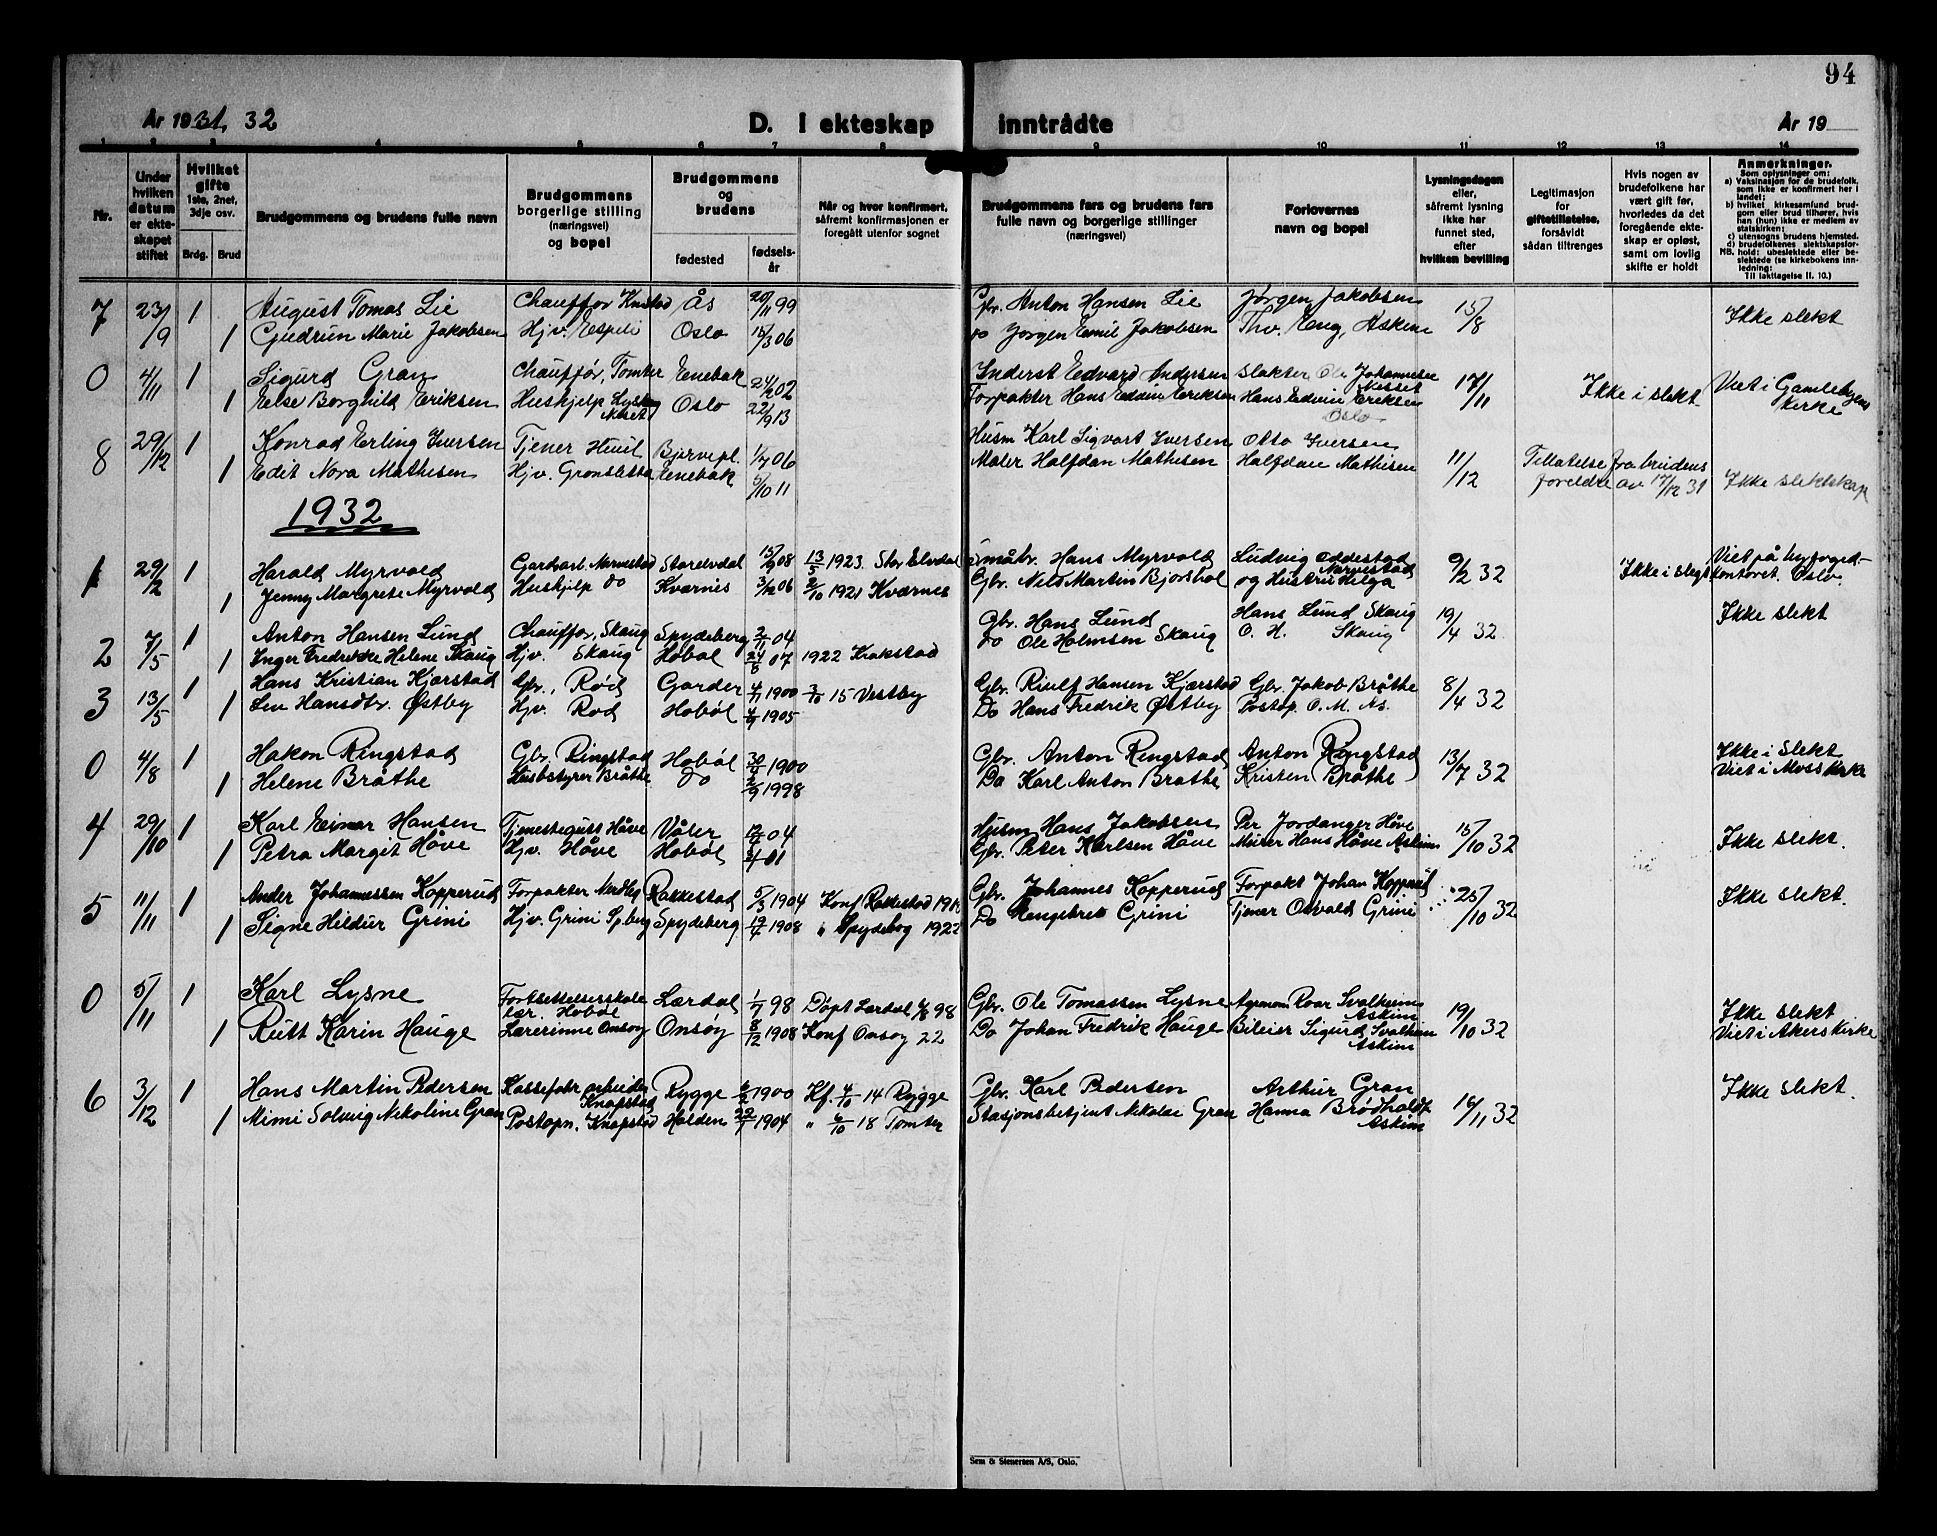 94
År 1931, 32
D. I ekteskap inntrådte
År 19
1 2 3 4 5 6 7 8 9 10 11 12 13 14
Nr.
Under hvilken datum er ekteskapet stiftet
Hvilket gifte 1ste, 2net, 3dje osv.
Brdg. Brud
Brudgommens og brudens fulle navn
Brudgommens borgerlige stilling (næringsvei) og bopel
Brudgommens og brudens
fødested
fødselsår
Når og hvor konfirmert, såfremt konfirmasjonen er foregått utenfor sognet
Brudgommens fars og brudens fars fulle navn og borgerlige stillinger (næringsvei)
Forlovernes navn og bopel
Lysningsdagen eller, såfremt lysning ikke har funnet sted, efter hvilken bevilling
Legitimasjon for giftetillatelse, forsåvidt sådan tiltrenges
Hvis nogen av brudefolkene har vært gift før, hvorledes da det foregående ekteskap er opløst, samt om lovlig skifte er holdt
Anmerkninger.
Som oplysninger om:
a) Vaksinasjon for de brudefolk, som ikke er konfirmert her i landet;
b) hvilket kirkesamfund brudgom eller brud tilhører, hvis han (hun) ikke er medlem av statskirken;
c) utensogns brudens hjemsted.
d) brudefolkenes slektskapsforhold: ubeslektede eller beslektede (se kirkebokens innledning:
NB. Til iakttagelse II. 10.)
7 23/9 1 August Tomas Lie Chauffør Knastad Ås 20/11 99 Gbr. Anton Hansen Lie Jørgen Jakobsen 15/8 Ikke slekt
1 Gudrun Marie Jakobsen Hjv. Espeli Oslo 15/3 06 do Jørgen Emil Jakobsen Thv. Eng, Askim
0 4/11 1 Sigurd Gran Chauffør, Tomter Enebak 24/2 02 Inderst Edvard Andersen Slakter Ole Johannesse Nesset 17/11 Ikke i slekt Viet i Gamlebyens Kirke
1 Else Borghild Eriksen Hushjelp Lysken Neset Oslo 22/9 13 Forpakter Hans Edvin Eriksen Hans Edvin Eriksen Oslo
8 29/12 1 Konrad Erling Iversen Tjener Huil Bjørvepl. 1/7 06 Husm Karl Sigvart Iversen Otto Iversen 11/12 Tillatelse fra brudens foreldre av 17/12 31 Ikke slektskap
1 Edit Nora Mathisen Hjv. Grønslitta Enebak 5/10 11 Maler Halfdan Mathisen Halfdan Mathisen
1932
1 29/2 1 Harald Myrvold Gardsarb. Narvestad Storelvdal 15/9 08 13/5 1923 Stor Elvdal Småbr. Hans Myrvold Ludvig Oddestad Narvestad 9/2 32 Ikke i slegt Viet på byfoged-kontoret. Oslo.
1 Jenny Margrete Myrvold Hushjelp do Kvarnis 3/12 06 2/10 1921 Kværnes Gbr. Nils Martin Bjørshol og Hustru Helga
2 7/5 1 Anton Hansen Lund Chauffør, Skaug Spydeberg 2/11 04 Gbr. Hans Lund Hans Lund Skaug 19/4 32 Ikke slekt
1 Inger Fredrikke Helene Skaug Hjv. Skaug Hobøl 24/8 07 1922 Krakstad do Ole Holmsen Skaug O. H. Skaug
3 13/5 1 Hans Kristian Kjærstad Gbr., Rød Garder 4/1 1900 3/10 15 Vestby Gbr. Riulf Hansen Kjærstad Gbr. Jakob Bråthe 8/4 32
1 Hansdtr. Østby Hjv. Rød Hobøl 4/9 1905 Do Hans Fredrik Østby Postop. O. M. As.
0 4/8 1 Hakon Ringstad Gbr. Ringstad Hobøl 30/8 1900 Gbr. Anton Ringstad Anton Ringstad 13/7 32 Ikke i Slekt
1 Helene Bråthe Husbstyrer Bråthe do 2/9 1998 Do Karl Anton Bråthe Kristen Bråthe Viet i Moss Kirke
4 29/10 1 Karl Einar Hansen Tjenestegutt Håve Våler 04 Husm Hans Jakobsen Per Jordanger Håve 15/10 32 Ikke slekt.
1 Petra Margit Håve Hjv. Håve Hobøl 01 Gbr. Peter Karlsen Håve Murer Hans Håve Askim
5 11/11 1 Ander Johannessen Kopperud Forpakter Rakkestad 5/3 1904 Konf Rakkestad Gbr. Johannes Kopperud Forpakt Johan Kopperud 25/10 32 Ikke slekt.
1 Signe Hildur Grini Hjv. Grini Spberg Spydeberg 19/4 1908 " Spydebog 1922 Do Engebret Grini Tjener Osvald Grini
0 5/11 1 Karl Lysne Fortsettelsesskole lær. Hobøl Lærdal 1/7 98 Døpt Lærdal 98 Gbr. Ole Tomassen Lysne Agronom Roar Svalheim Askim 19/10 32 Ikke slekt
1 Rutt Karin Hauge Lærerinne Onsøy Onsøy 8/12 1908 Konf Onsøy 22 Do Johan Fredrik Hauge Bileier Sigurd Svalheim Askim Viet i Akers Kirke
6 3/12 1 Hans Martin Pedersen Kassefabr arbeider Knapstad Rygge 1900 Kf. 4/10 14 Rygge Gbr. Karl Pedersen Arthur Gran 16/11 32 Ikke slekt.
1 Mimi Solveig Nikoline Gran Postopn. Knapstad Halden 22/1 1904 " 6/10 18 Tomter Stasjonsbetjent Nikolai Gran Hanna Brødholdt Askim
Sem & Stenersen A/S, Oslo.